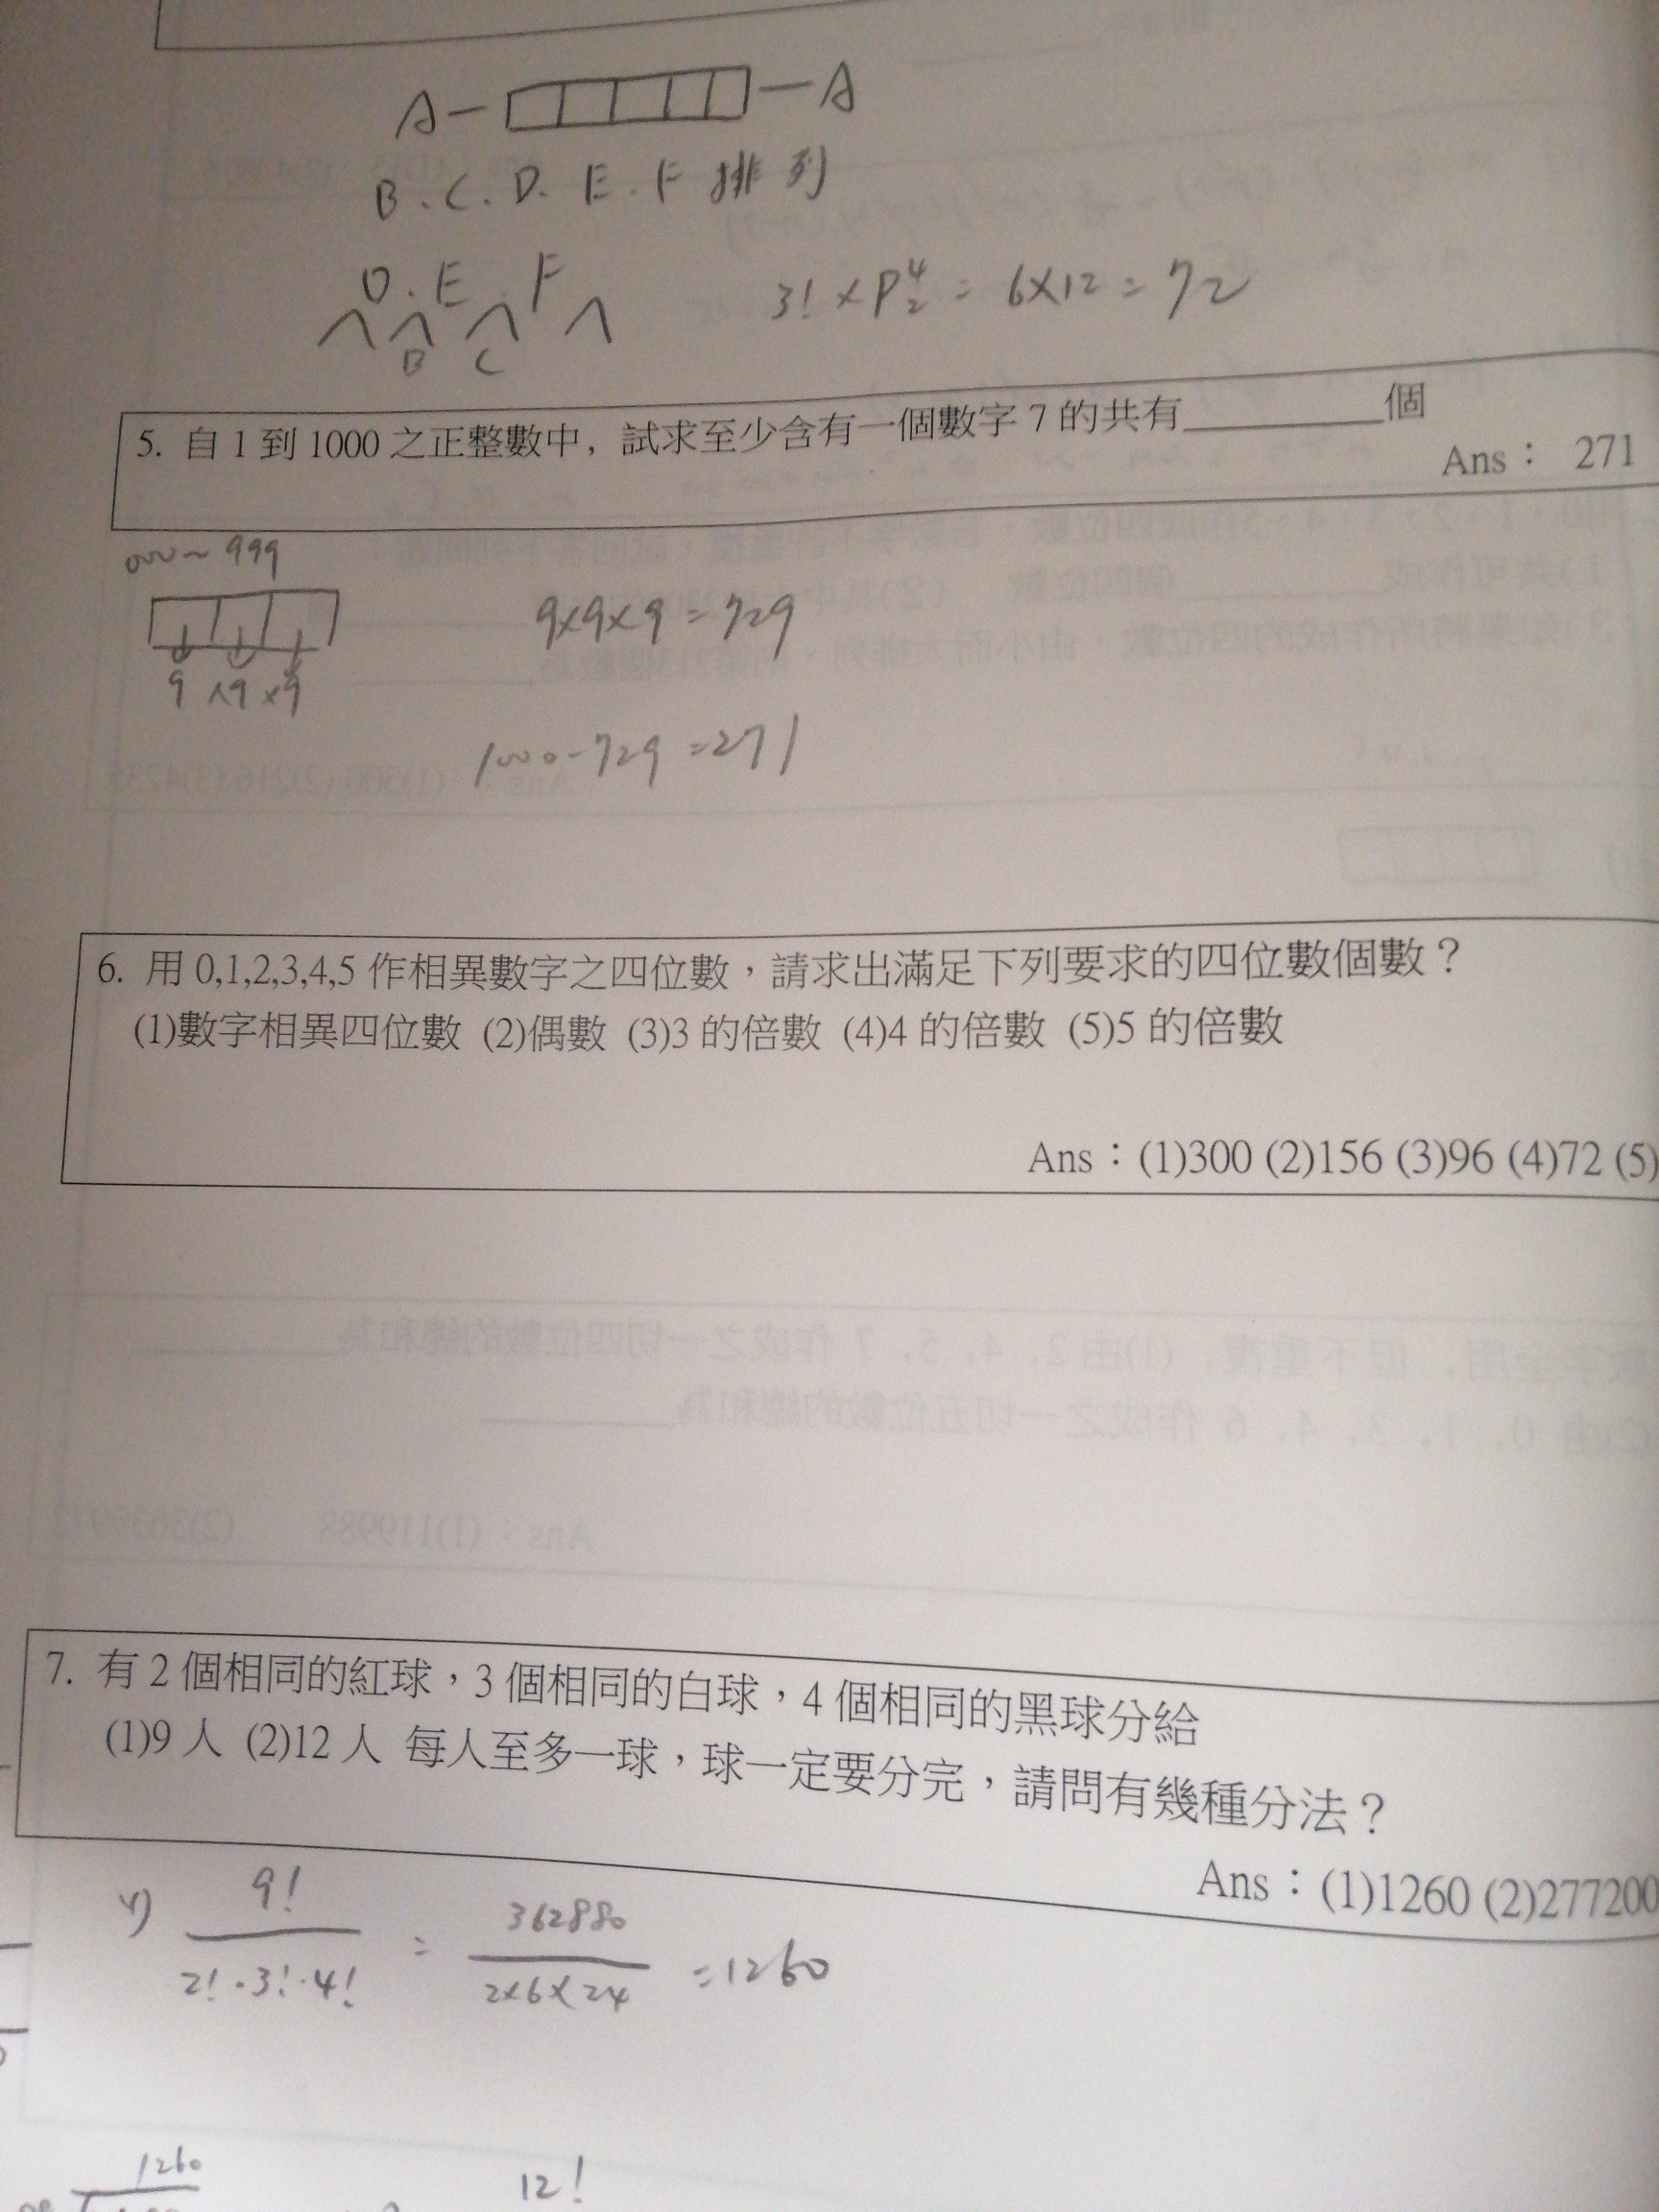 A — — A
B . C . D . E . F 排列
D . E . F
B C
3! × P⁴₂ = 6×12 = 72
5. 自 1 到 1000 之正整數中, 試求至少含有一個數字 7 的共有________個
Ans： 271
000 ~ 999
9 ×9 ×9
9×9×9 = 729
1000 - 729 = 271
6. 用 0,1,2,3,4,5 作相異數字之四位數，請求出滿足下列要求的四位數個數？
(1)數字相異四位數 (2)偶數 (3)3 的倍數 (4)4 的倍數 (5)5 的倍數
Ans：(1)300 (2)156 (3)96 (4)72 (5)
7. 有 2 個相同的紅球，3 個相同的白球，4 個相同的黑球分給
(1)9 人 (2)12 人 每人至多一球，球一定要分完，請問有幾種分法？
Ans：(1)1260 (2)277200
9! / 2! · 3! · 4! = 362880 / 2×6×24 = 1260
1260
12!